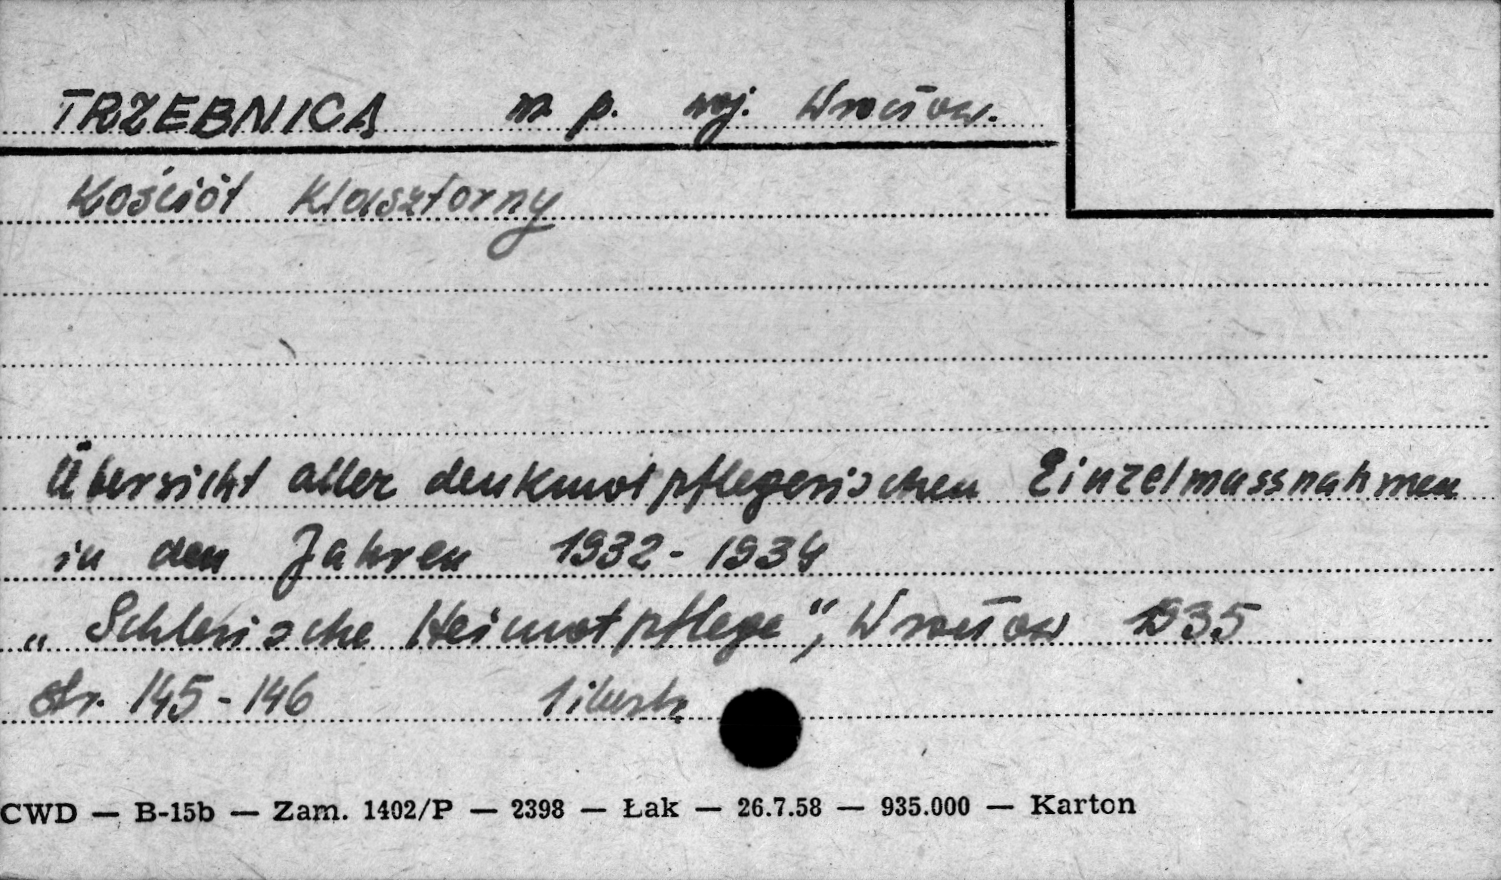 TRZEBNICA m. p. woj. Wrocław.
Kościół Klasztorny
Übersicht aller denkmalpflegerischen Einzelmassnahmen
in den Jahren 1932-1934
„Schlesische Heimatpflege", Wrocław 1935
str. 145-146 1 ilustr.
CWD — B-15b — Zam. 1402/P — 2398 — Łak — 26.7.58 — 935.000 — Karton